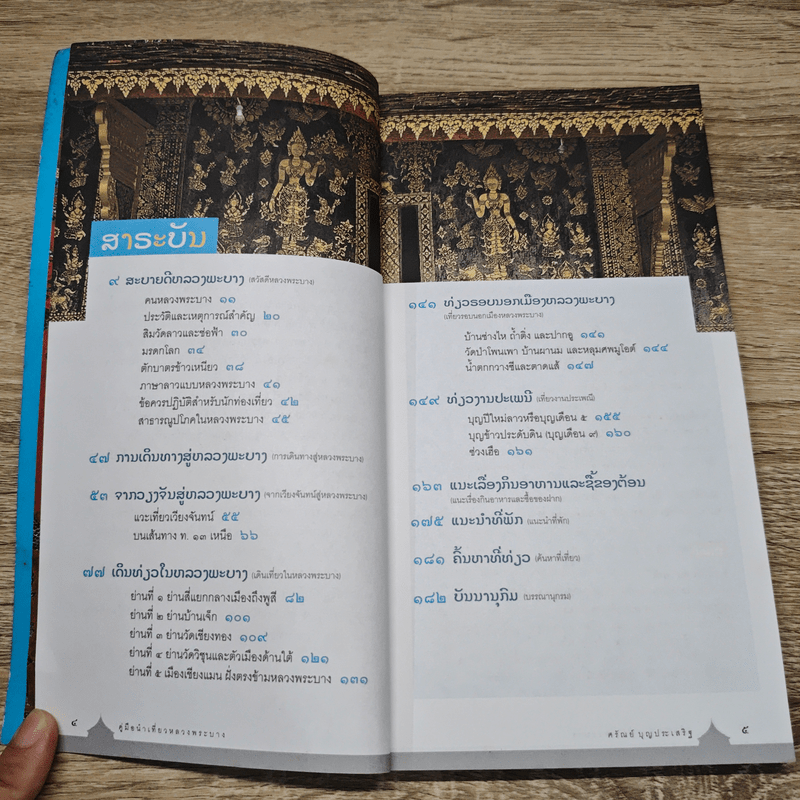 ສາຣະບັນ
๙ ສະບາຍດີຫລວງພະບາງ (สวัสดีหลวงพระบาง)
คนหลวงพระบาง ๑๑
ประวัติและเหตุการณ์สำคัญ ๒๐
สิมวัดลาวและช่อฟ้า ๓๐
มรดกโลก ๓๔
ตักบาตรข้าวเหนียว ๓๘
ภาษาลาวแบบหลวงพระบาง ๔๑
ข้อควรปฏิบัติสำหรับนักท่องเที่ยว ๔๒
สาธารณูปโภคในหลวงพระบาง ๔๕
๔๗ ການເດິນທາງສູ່ຫລວງພະບາງ (การเดินทางสู่หลวงพระบาง)
๕๓ ຈາກວຽງຈັນສູ່ຫລວງພະບາງ (จากเวียงจันทน์สู่หลวงพระบาง)
แวะเที่ยวเวียงจันทน์ ๕๕
บนเส้นทาง ท. ๑๓ เหนือ ๖๖
๗๗ ເດິນທ່ຽວໃນຫລວງພະບາງ (เดินเที่ยวในหลวงพระบาง)
ย่านที่ ๑ ย่านสี่แยกกลางเมืองถึงพูสี ๘๒
ย่านที่ ๒ ย่านบ้านเจ็ก ๑๐๑
ย่านที่ ๓ ย่านวัดเชียงทอง ๑๐๙
ย่านที่ ๔ ย่านวัดวิชุนและตัวเมืองด้านใต้ ๑๒๑
ย่านที่ ๕ เมืองเชียงแมน ฝั่งตรงข้ามหลวงพระบาง ๑๓๑
๔
คู่มือนำเที่ยวหลวงพระบาง
๑๔๑ ທ່ຽວຮອບນອກເມືອງຫລວງພະບາງ
(เที่ยวรอบนอกเมืองหลวงพระบาง)
บ้านช่างไห ถ้ำติ่ง และปากอู ๑๔๑
วัดป่าโพนเพา บ้านผานม และหลุมศพมูโอต์ ๑๔๔
น้ำตกกวางซีและตาดแส้ ๑๔๗
๑๔๙ ທ່ຽວງານປະເພນີ (เที่ยวงานประเพณี)
บุญปีใหม่ลาวหรือบุญเดือน ๕ ๑๕๕
บุญข้าวประดับดิน (บุญเดือน ๙) ๑๖๐
ช่วงเฮือ ๑๖๑
๑๖๓ ແນະເລື່ອງກິນອາຫານແລະຊື້ຂອງຕ້ອນ
(แนะเรื่องกินอาหารและซื้อของฝาก)
๑๗๕ ແນະນຳທີ່ພັກ (แนะนำที่พัก)
๑๘๑ ຄົ້ນຫາທີ່ທ່ຽວ (ค้นหาที่เที่ยว)
๑๘๒ ບັນນານຸກົມ (บรรณานุกรม)
ศรัณย์ บุญประเสริฐ
๕